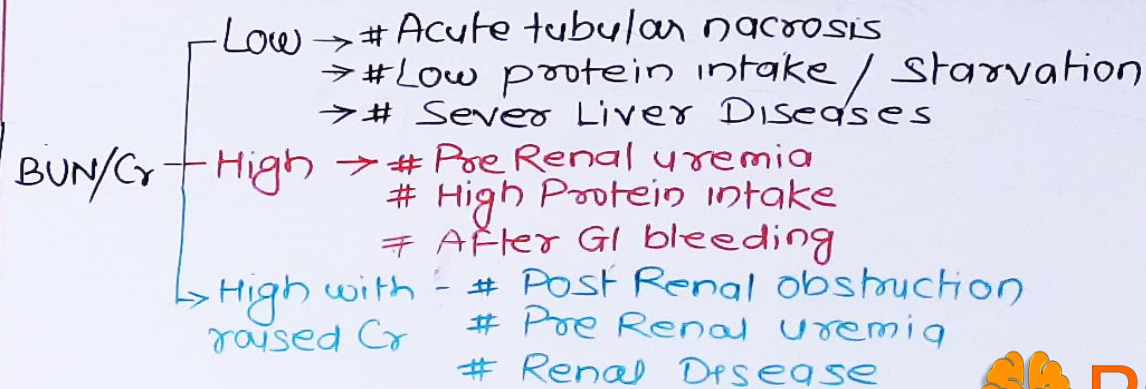 Low → # Acute tubular nacrosis
→ # Low protein intake / Starvation
→ # Sever Liver Diseases
BUN/Cr High → # Pre Renal uremia
# High Protein intake
# After GI bleeding
High with - # Post Renal obstruction
raised Cr # Pre Renal uremia
# Renal Disease